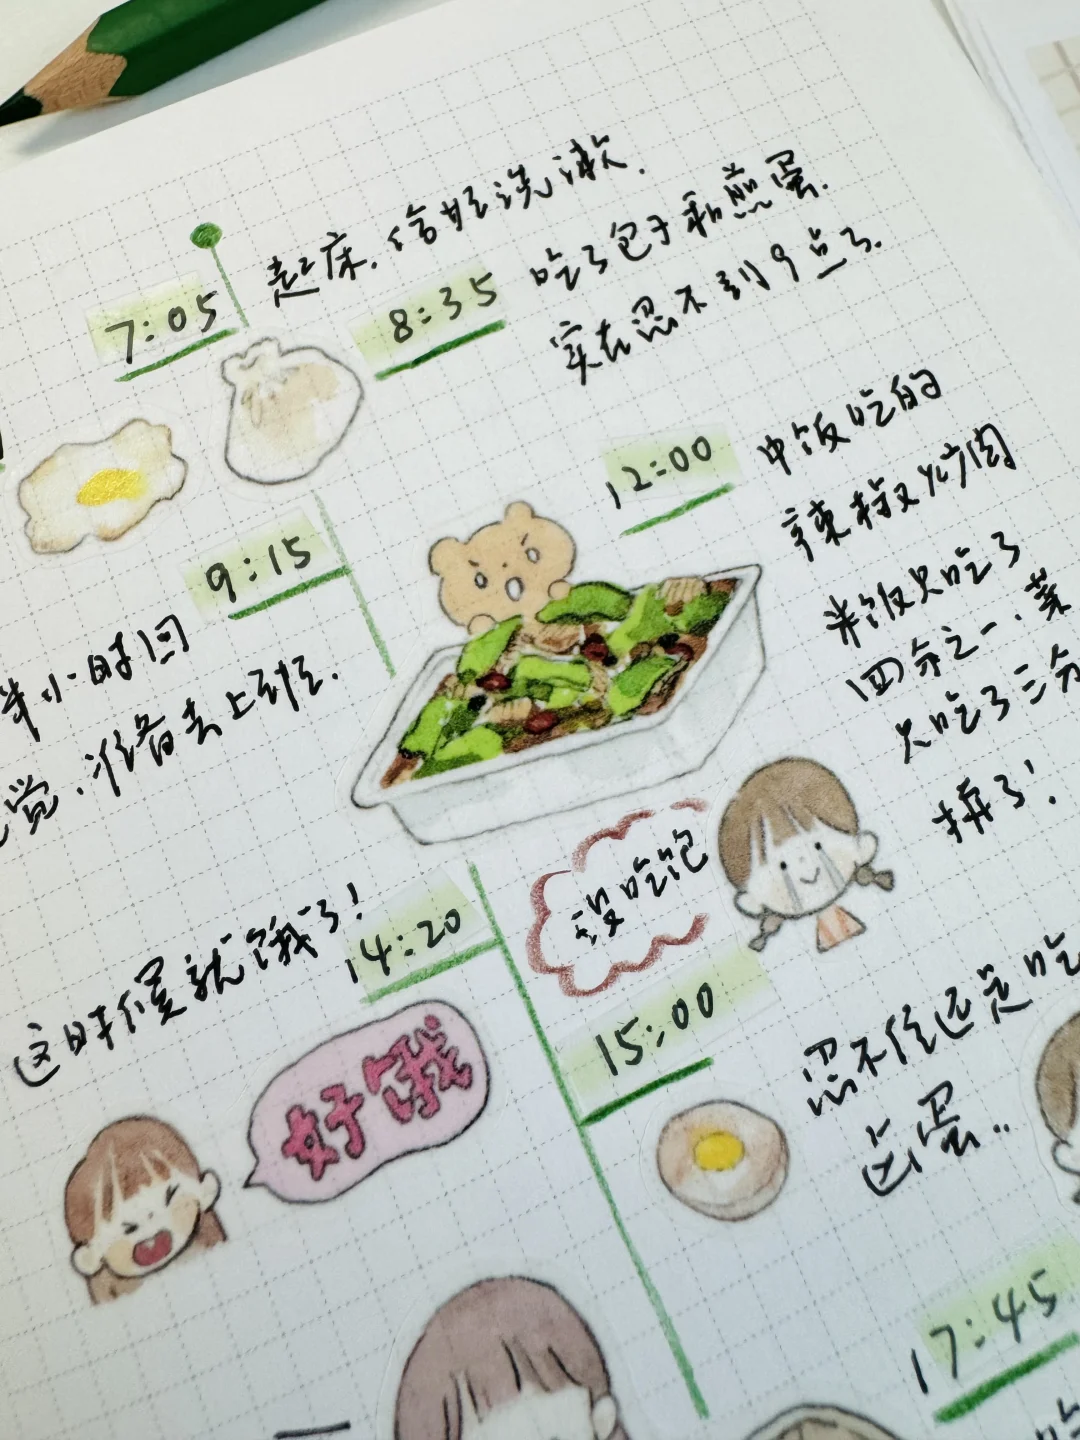 7:05
起床.给娃洗漱.
8:35
吃了包子和煎蛋.
实在忍不到9点了.
9:15
半小时回
觉.准备去上班.
12:00
中饭吃的
辣椒炒肉
米饭只吃了
四分之一.菜
只吃了三分
拼了!
没吃饱
14:20
这时候就饿了!
好饿
15:00
忍不住还是吃
卤蛋..
17:45